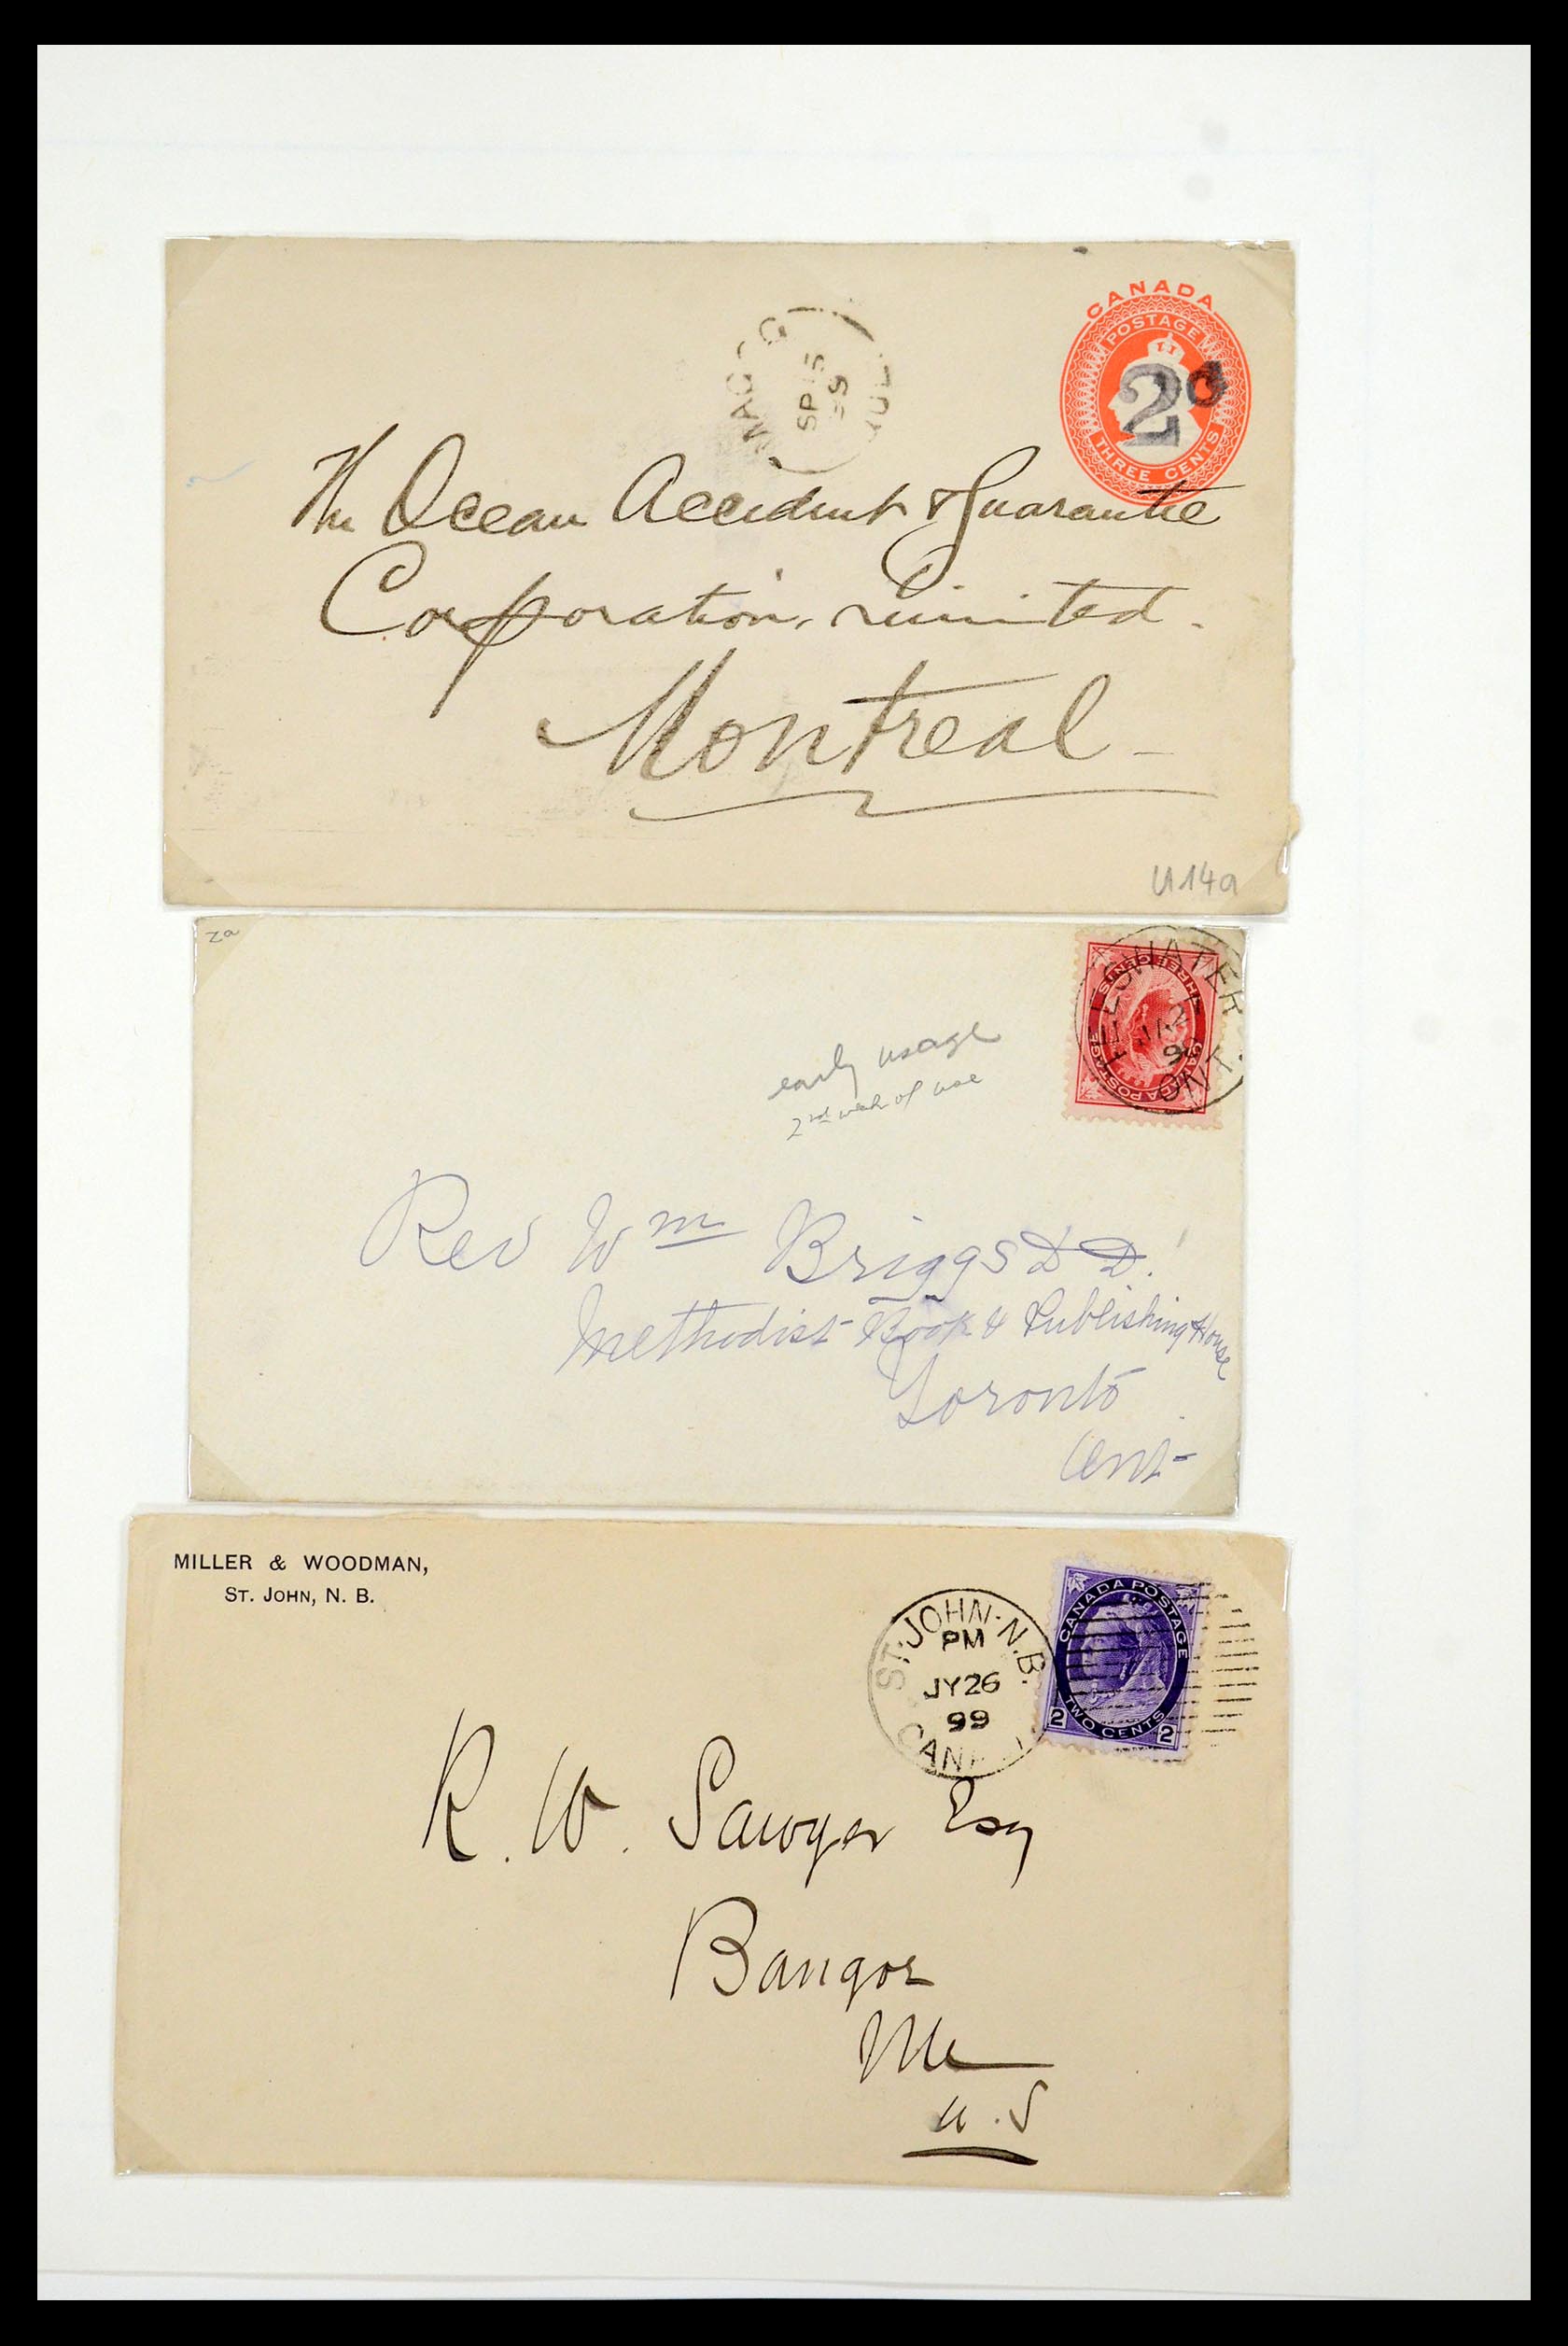 CANADA
POSTAGE
2¢
THREE CENTS
SP 15
99
The Ocean Accident & Guarantee
Corporation, Limited.
Montreal
U14a
za
THREE CENTS
CANADA POSTAGE
ONT.
early usage
2nd week of use
Rev Wm Briggs D D.
Methodist Book & Publishing House
Toronto
Ont
MILLER & WOODMAN,
ST. JOHN, N. B.
CANADA POSTAGE
TWO CENTS
2 2
ST. JOHN. N.B.
PM
JY 26
99
R. W. Sawyer Esq
Bangor
Me
U.S